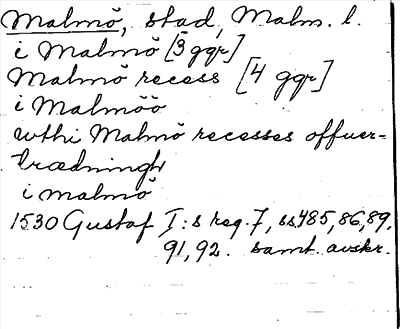 Malmö, stad, Malm. l.
i Malmö [3 ggr]
Malmö recess [4 ggr]
i Malmöö
wthi Malmö recesses offuer-
trædningh
i malmö
1530 Gustaf I:s reg. 7, ss 485, 86, 89,
91, 92. samt. avskr.